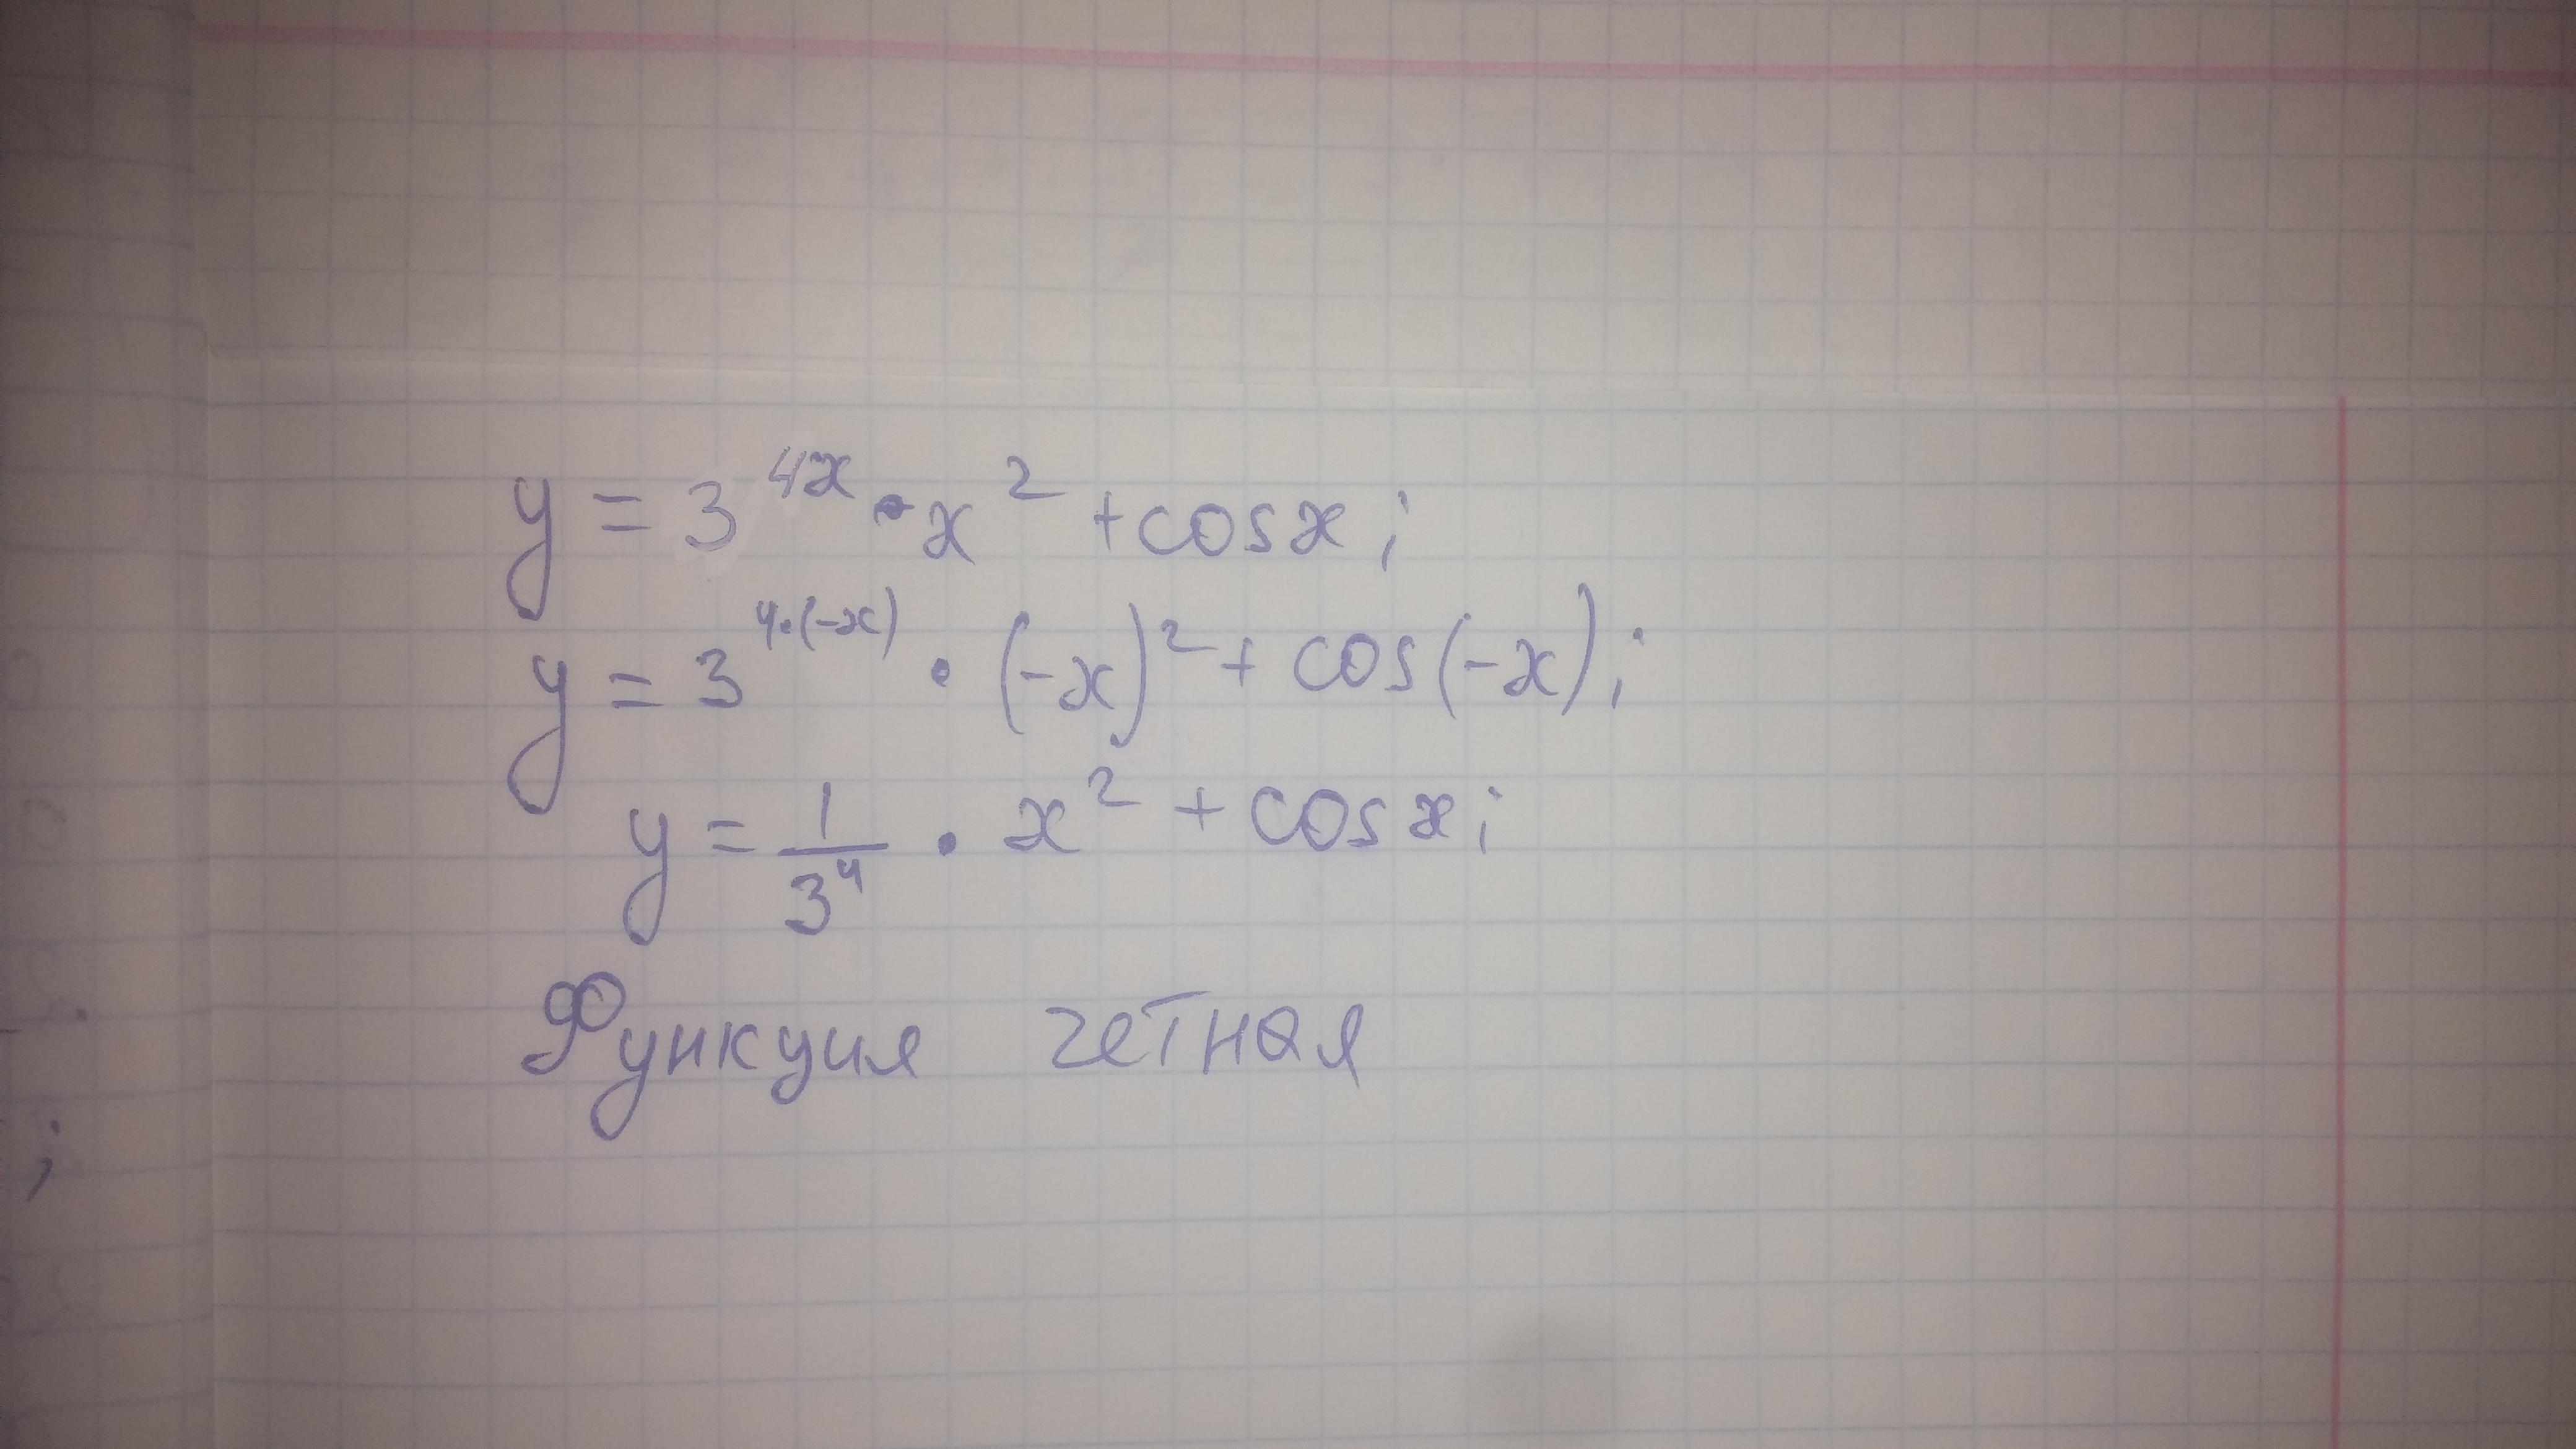 y = 3^{4x} · x² + cos x ;
y = 3^{4·(-x)} · (-x)² + cos(-x) ;
y = \frac{1}{3^4} · x² + cos x ;
Функция четная